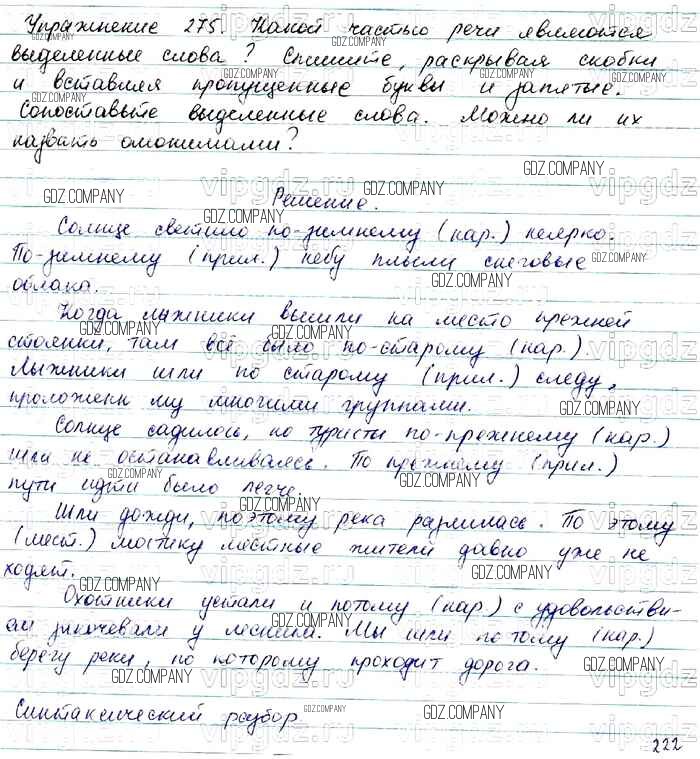 Упражнение 275. Какой частью речи являются
выделенные слова? Спишите, раскрывая скобки
и вставляя пропущенные буквы и запятые.
Сопоставьте выделенные слова. Можно ли их
назвать омонимами?
Решение.
Солнце светило по-зимнему (нар.) неярко.
По-зимнему (прил.) небу плыли снеговые
облака.
Когда лыжники вышли на место прежней
стоянки, там всё было по-старому (нар.).
Лыжники шли по старому (прил.) следу,
проложенн му многими группами.
Солнце садилось, но туристы по-прежнему (нар.)
шли не останавливаясь. По прежнему (прил.)
пути идти было легче.
Шли дожди, поэтому река разлилась. По этому
(мест.) мостику местные жители давно уже не
ходят.
Охотники устали и потому (нар.) с удовольстви-
ем заночевали у лесника. Мы шли по тому (нар.)
берегу реки, по которому проходит дорога.
Синтаксический разбор
222
GDZ.COMPANY
vipgdz.ru